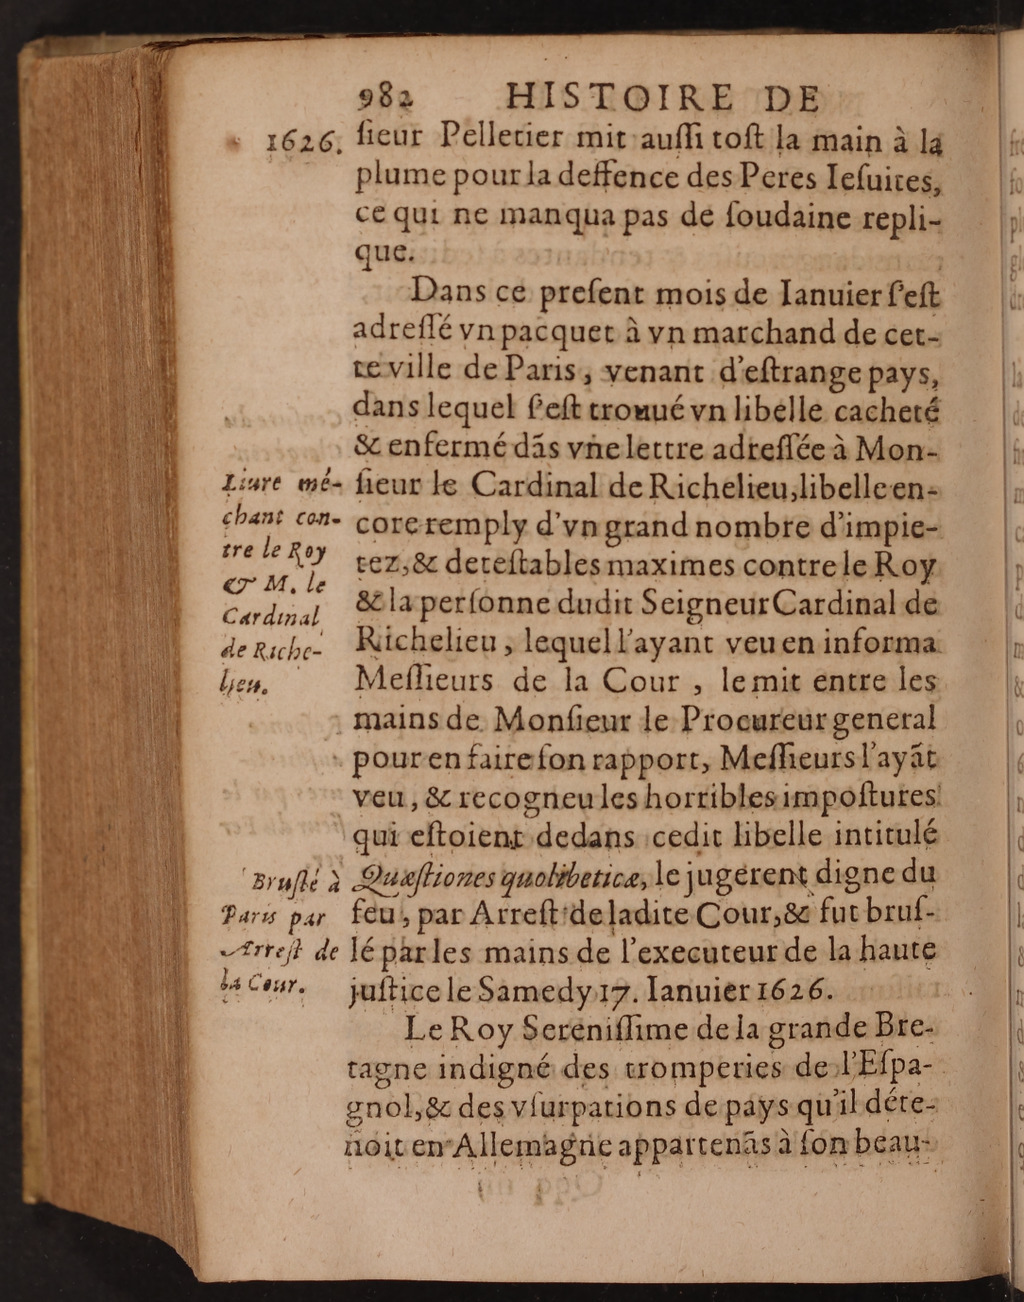 982 HISTOIRE DE
1626. ſieur Pelletier mit auſſi toſt la main à la
plume pour la deffence des Peres Ieſuites,
ce qui ne manqua pas de ſoudaine repli-
que.
Dans ce preſent mois de Ianuier ſ'eſt
adreſſé vn pacquet à vn marchand de cet-
te ville de Paris, venant d'eſtrange pays,
dans lequel ſ'eſt trouué vn libelle cacheté
& enfermé dãs vne lettre adreſſée à Mon-
ſieur le Cardinal de Richelieu, libelle en-
core remply d'vn grand nombre d'impie-
tez, & deteſtables maximes contre le Roy
& la perſonne dudit Seigneur Cardinal de
Richelieu, lequel l'ayant veu en informa
Meſſieurs de la Cour, le mit entre les
mains de Monſieur le Procureur general
pour en faire ſon rapport, Meſſieurs l'ayãt
veu, & recogneu les horribles impoſtures
qui eſtoient dedans cedit libelle intitulé
Quæſtiones quolibeticæ, le jugerent digne du
feu, par Arreſt de ladite Cour, & fut bruſ-
lé par les mains de l'executeur de la haute
juſtice le Samedy 17. Ianuier 1626.
Le Roy Sereniſſime de la grande Bre-
tagne indigné des tromperies de l'Eſpa-
gnol, & des vſurpations de pays qu'il déte-
noit en Allemagne appartenãs à ſon beau-
Liure mé-
chant con-
tre le Roy
& M. le
Cardinal
de Riche-
lieu.
Bruſlé à
Paris par
Arreſt de
la Cour.